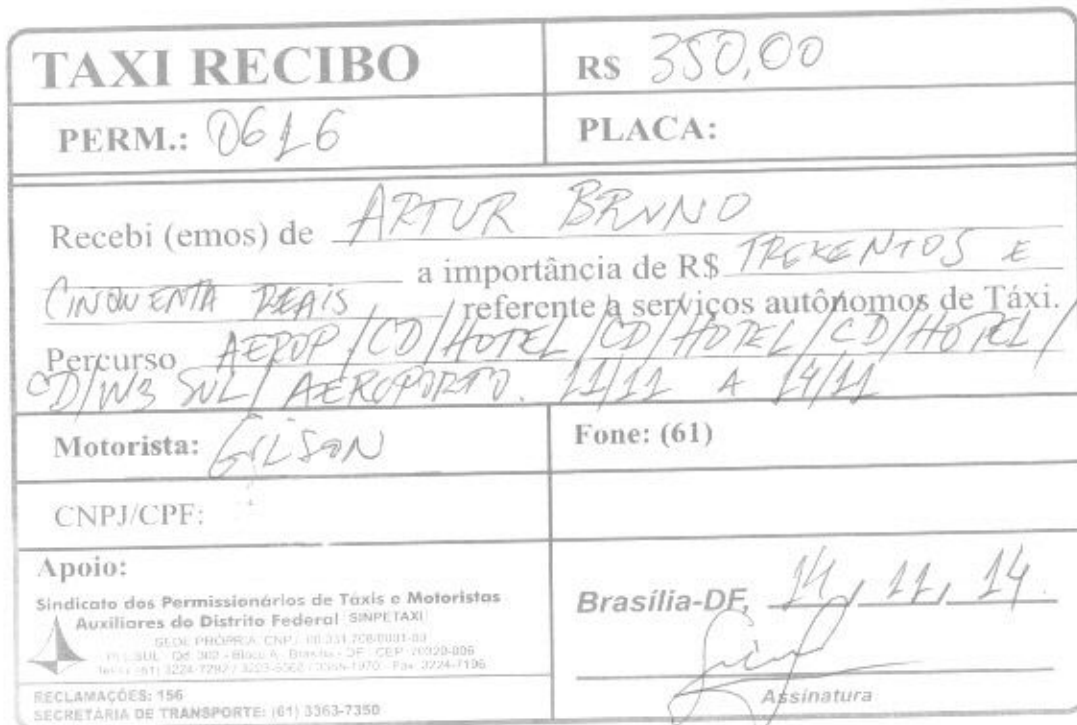 TAXI RECIBO
R$ 350,00
PERM.: 0616
PLACA:
Recebi (emos) de ARTUR BRUNO
a importância de R$ TREZENTOS E
CINQUENTA REAIS referente a serviços autônomos de Táxi.
Percurso AEROP/CD/HOTEL/CD/HOTEL/CD/HOTEL/
CD/W3 SUL/AEROPORTO. 11/11 A 14/11
Motorista: GILSON
Fone: (61)
CNPJ/CPF:
Apoio:
Sindicato dos Permissionários de Táxis e Motoristas
Auxiliares do Distrito Federal SINPETAXI
SEDE PRÓPRIA CNPJ
Bloco A - Brasília - DF - CEP
Brasília-DF, 14, 11, 14
Assinatura
RECLAMAÇÕES: 156
SECRETARIA DE TRANSPORTE: (61) 3363-7350